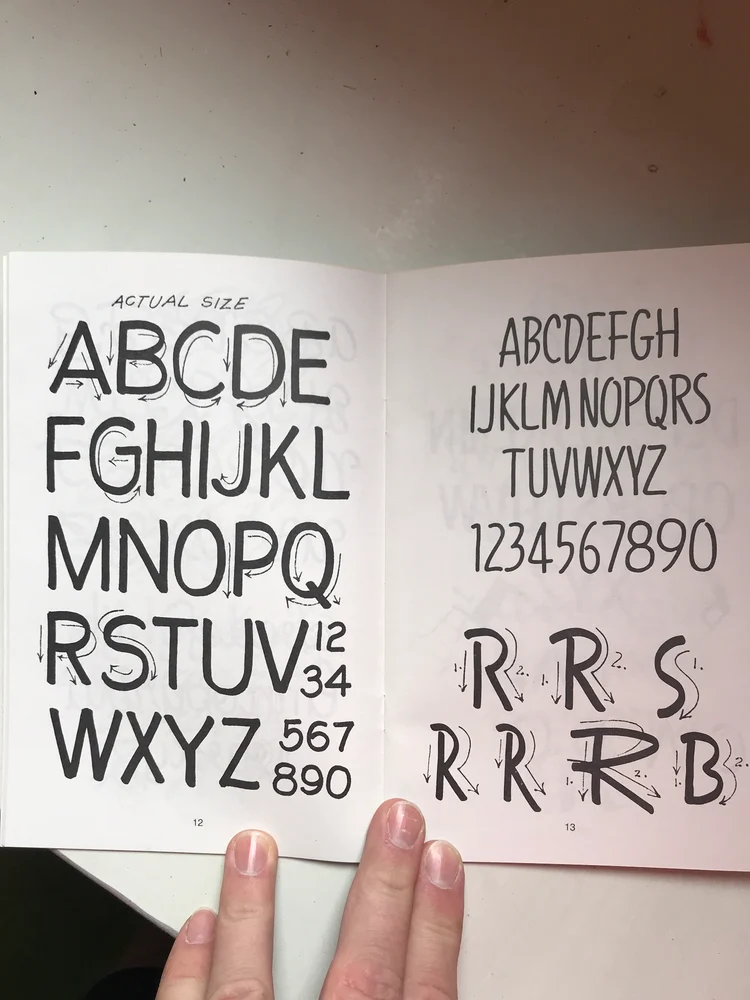 ACTUAL SIZE
ABCDE
FGHIJKL
MNOPQ
RSTUV 12
34
WXYZ 567
890
12
ABCDEFGH
IJKLM NOPQRS
TUVWXYZ
1234567890
1. R 2. 1. R 2. S 1.
R R 1. R 2. 1. B 2.
13